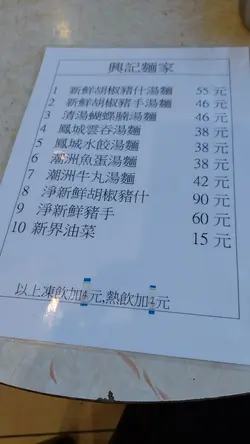 興記麵家
1 新鮮胡椒豬什湯麵 55 元
2 新鮮胡椒豬手湯麵 46 元
3 清湯蝴蝶腩湯麵 46 元
4 鳳城雲吞湯麵 38 元
5 鳳城水餃湯麵 38 元
6 潮洲魚蛋湯麵 38 元
7 潮洲牛丸湯麵 42 元
8 淨新鮮胡椒豬什 90 元
9 淨新鮮豬手 60 元
10 新界油菜 15 元
以上凍飲加4元,熱飲加2元